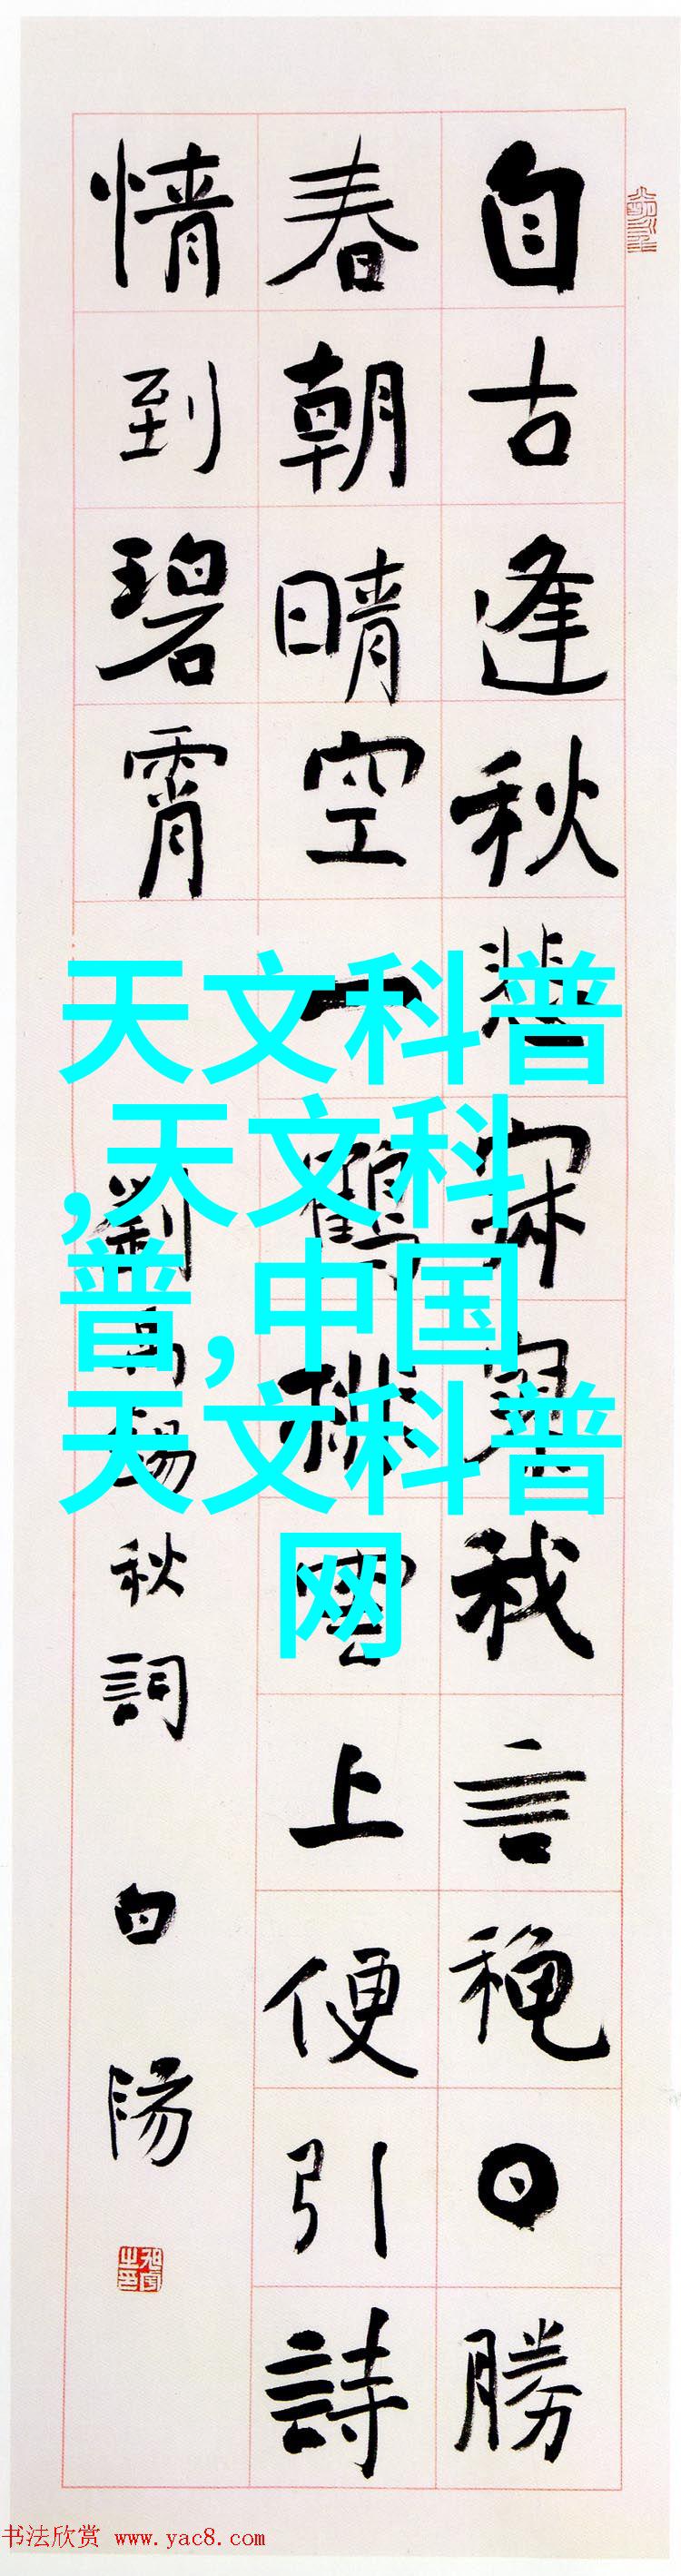 自古逢秋悲寂寥我言穐日勝
春朝晴空一鶴排雲上便引詩
情到碧霄
劉禹錫秋詞 白陽
天文科普
,天文科
普,中国
天文科普
网
书法欣赏 www.yac8.com